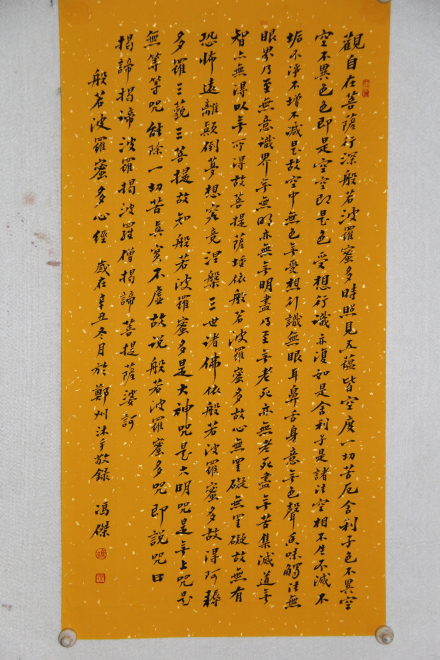 觀自在菩薩行深般若波羅蜜多時照見五蘊皆空度一切苦厄舍利子色不異空
空不異色色即是空空即是色受想行識亦復如是舍利子是諸法空相不生不滅不
垢不淨不增不減是故空中無色無受想行識無眼耳鼻舌身意無色聲香味觸法無
眼界乃至無意識界無無明亦無無明盡乃至無老死亦無老死盡無苦集滅道無
智亦無得以無所得故菩提薩埵依般若波羅蜜多故心無罣礙無罣礙故無有
恐怖遠離顛倒夢想究竟涅槃三世諸佛依般若波羅蜜多故得阿耨
多羅三藐三菩提故知般若波羅蜜多是大神咒是大明咒是無上咒是
無等等咒能除一切苦真實不虛故說般若波羅蜜多咒即說咒曰
揭諦揭諦波羅揭諦波羅僧揭諦菩提薩婆訶
般若波羅蜜多心經 歲在辛丑冬月於鄭州沐手敬錄 馮傑